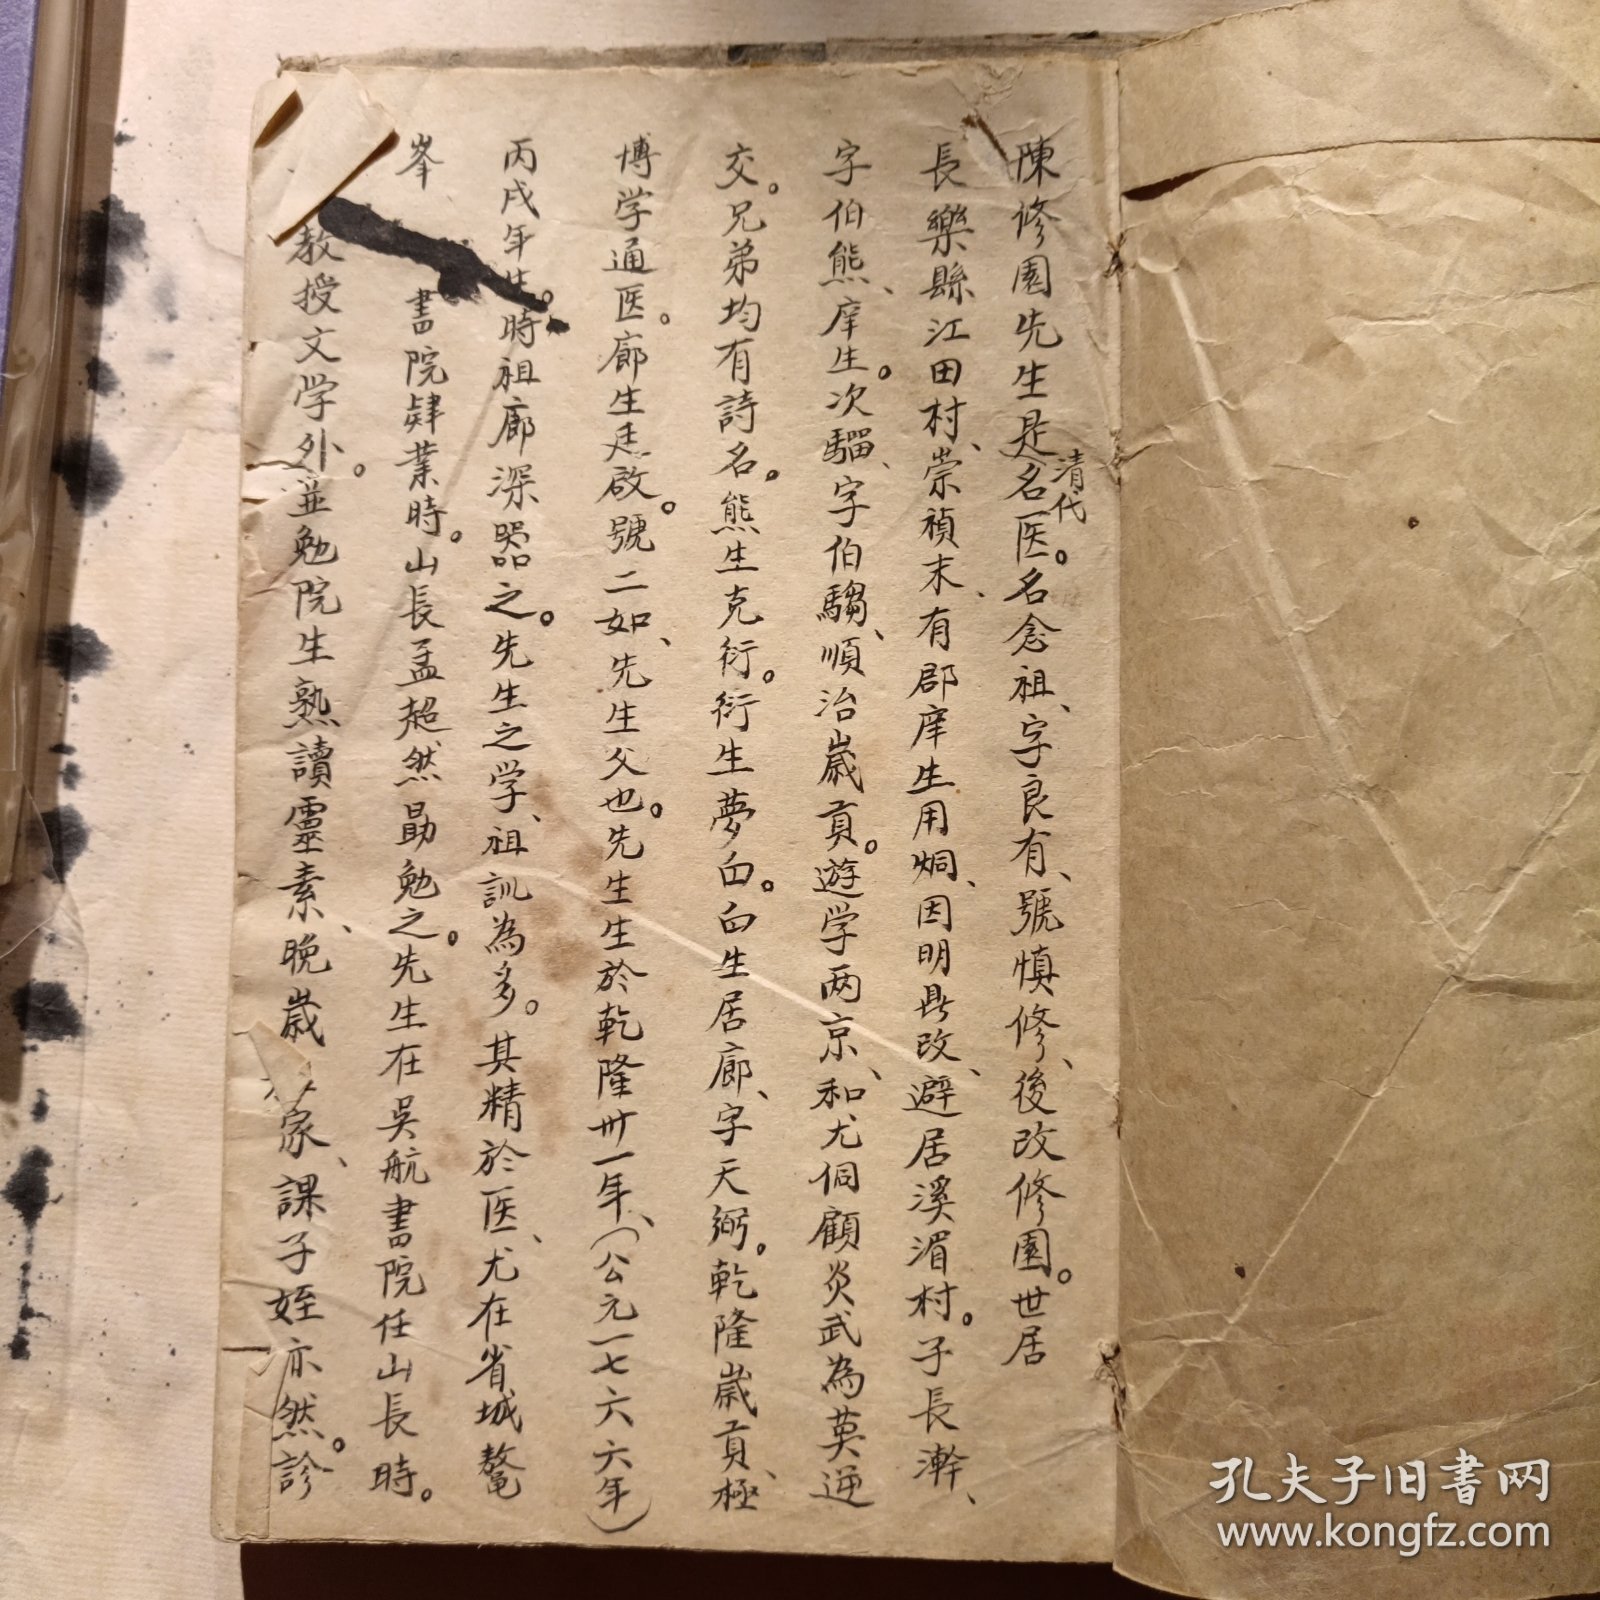 陳修園先生是清代名医。名念祖、字良有、號慎修、後改修園。世居
長樂縣江田村、崇禎末、有郡庠生用烔、因明鼎改、避居溪湄村。子長漧、
字伯熊、庠生。次騮、字伯騶、順治歲貢。遊学两京、和尤侗顧炎武為莫逆
交。兄弟均有詩名。熊生克衍。衍生夢白。白生居廊、字天弼。乾隆歲貢、極
博学通医。廊生廷啟。號二如、先生父也。先生生於乾隆卅一年、(公元一七六六年)
丙戌年生。時祖廊深器之。先生之学、祖訓為多。其精於医、尤在省城鰲
峯書院肄業時。山長孟超然勗勉之。先生在吳航書院任山長時。
教授文学外。並勉院生熟讀靈素、晚歲家、課子姪亦然。診
孔夫子旧書网
www.kongfz.com